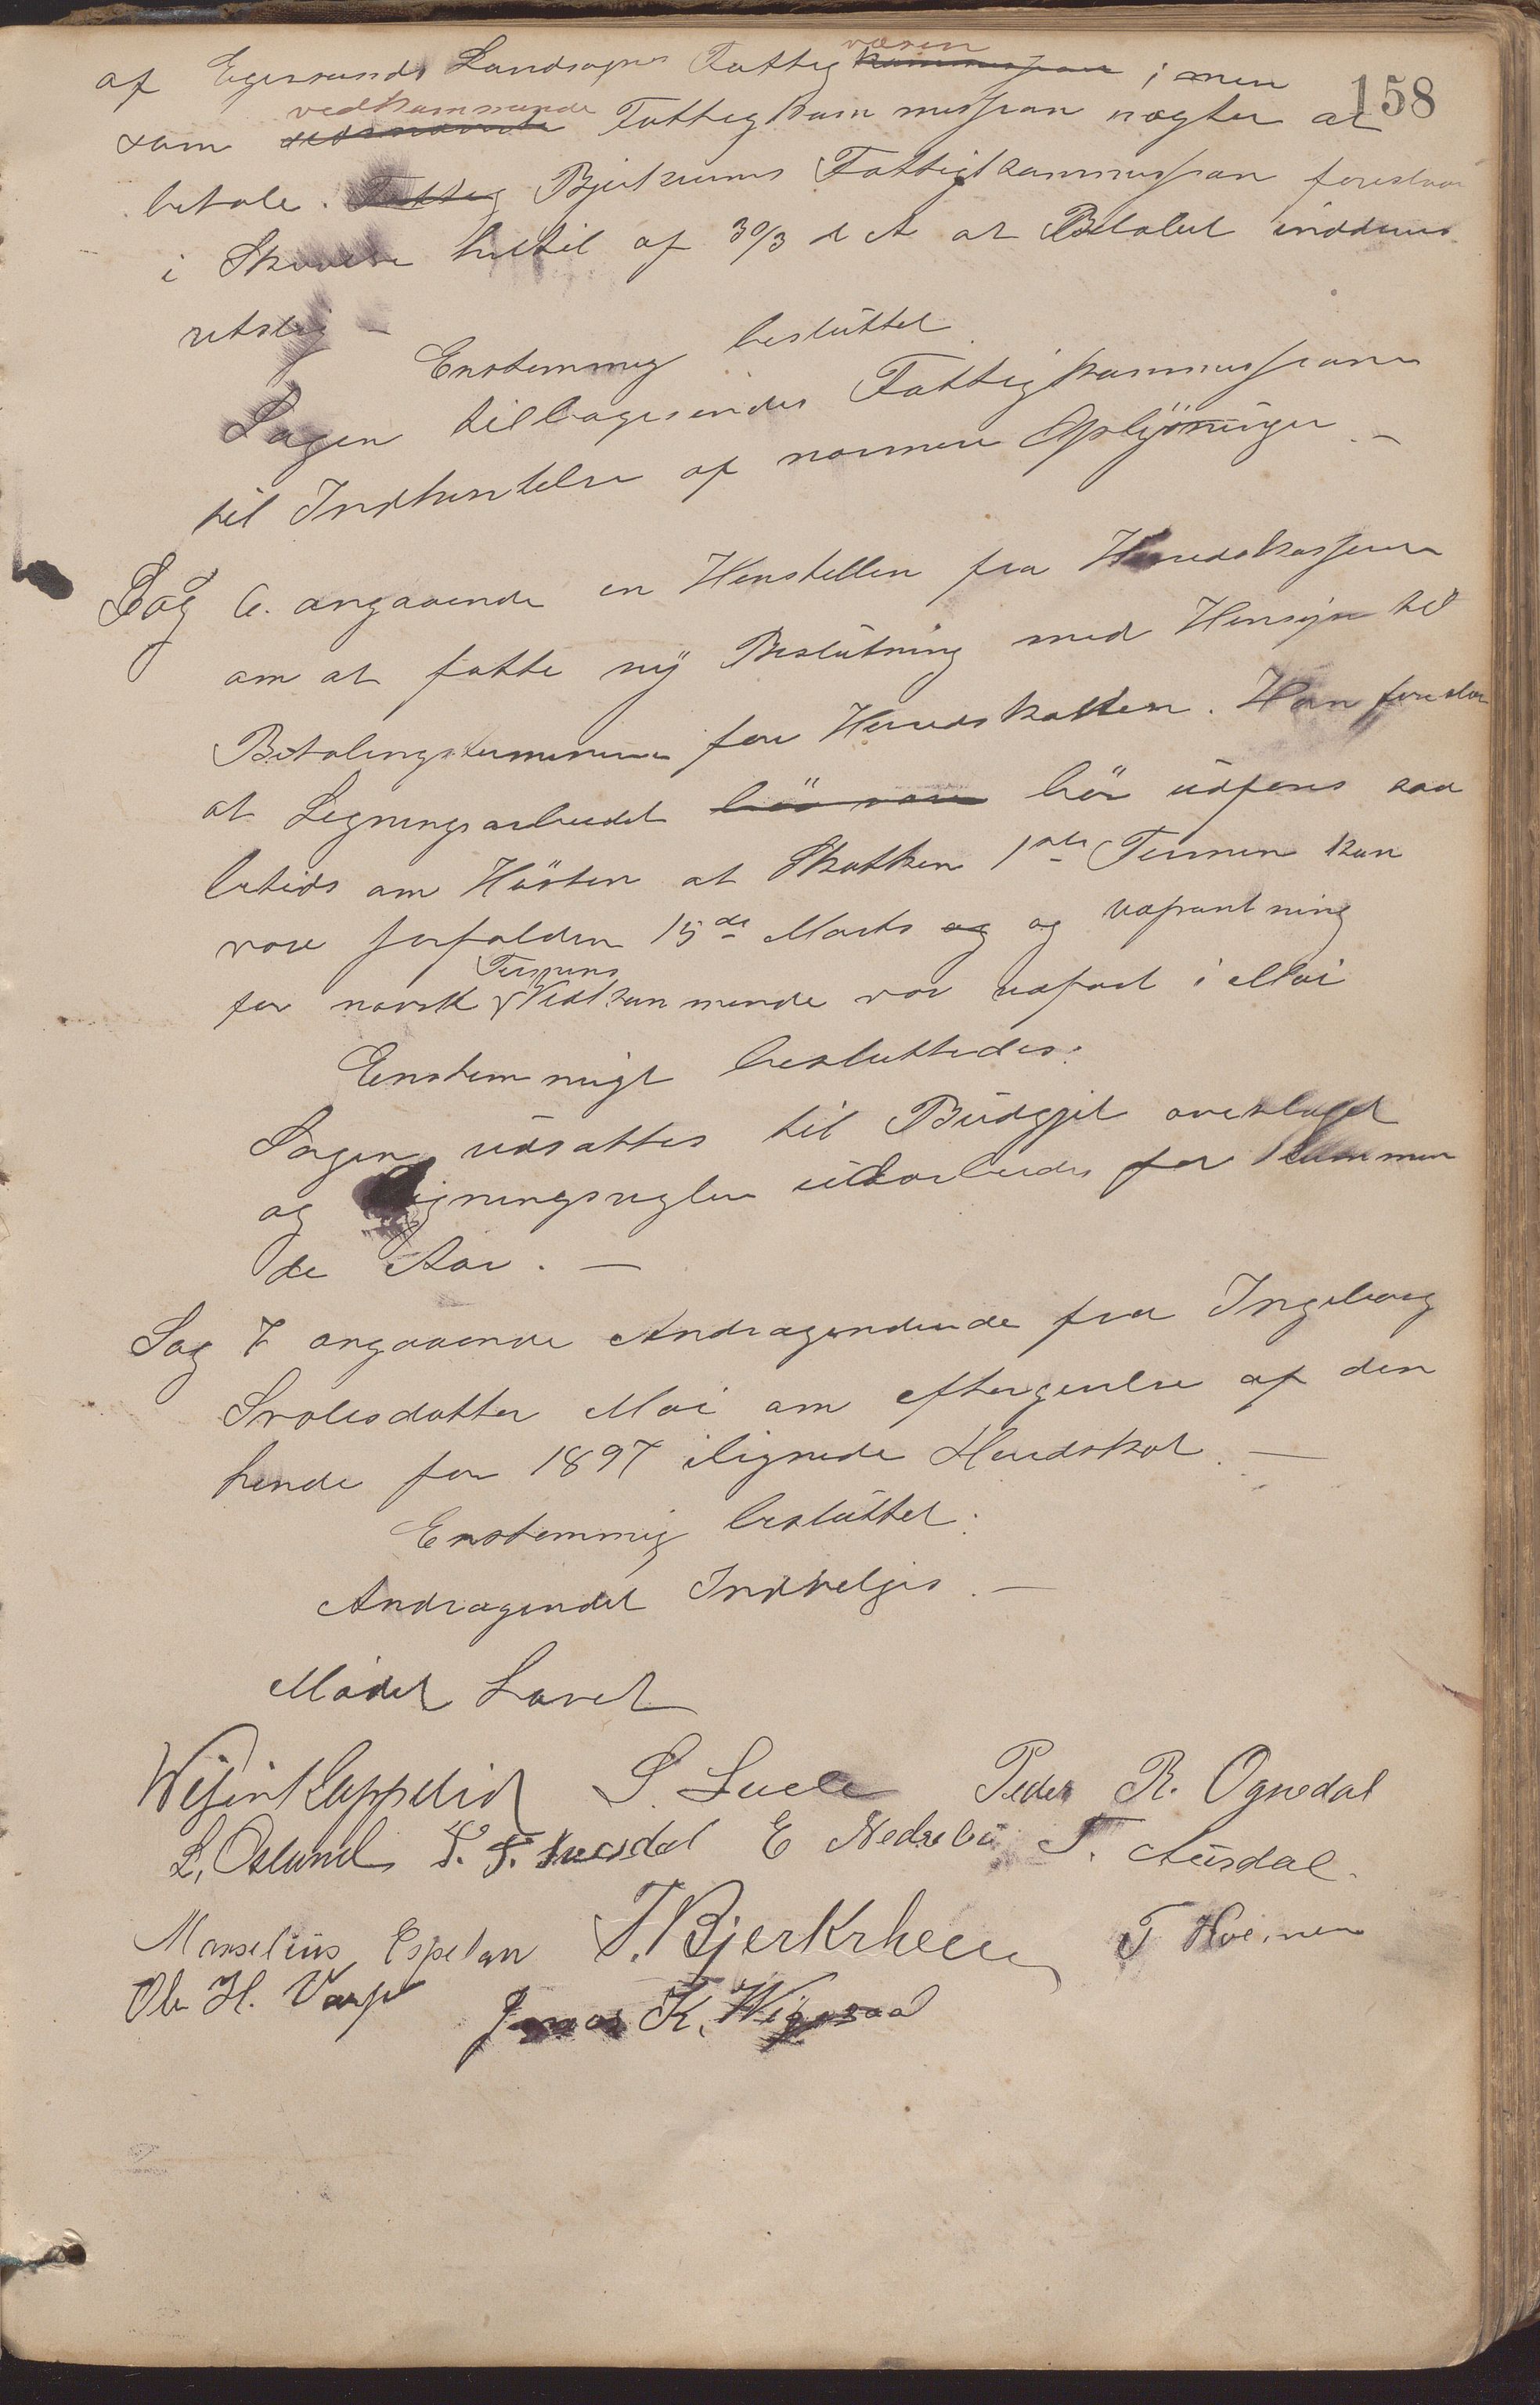 158
af Egersunds Landsogns Fattig væsen kommission ; men
som vedkommende Fattigkommission nægter at
betale. Fattig Bjerkreims Fattigkommission foreslaar
i Skrivelse hertil af 30/3 d A at Beløbet inddrives
retslig –
Enstemmig besluttet
Sagen tilbagesendes Fattigkommissionen
til Indhentelse af nærmere Oplysninger. –
Sag 6. angaaende en Henstillen fra Herredskasseren
om at fatte ny Beslutning med Hensyn til
Betalingsterminerne for Herredskatten. Han foreslaar
at Ligningsarbeidet bør være bør udføres saa
betids om Høsten at Skatten 1ste Termin kan
være forfalden 15de Marts og og Udpantning
for nævnte Termins Vedkommende var udført i Mai
Enstemmigt besluttedes:
Sagen udsættes til Budgjet overslaget
og Ligningsregler udarbeides for kommen
de Aar. –
Sag 7 angaaende Andragendende fra Ingeborg
Salvesdatter Moi om eftergivelse af den
hende for 1897 ilignede Herredskat. –
Enstemmig besluttet:
Andragendet Indvilges. –
Mødet Hævet
S. Sæle Peder R. Ognedal
L. Oslund S. T. E Nedrebø T. Austdal.
Marselius Espeland T. Bjerkrheim T
Ole H. Vaage Jonas K.